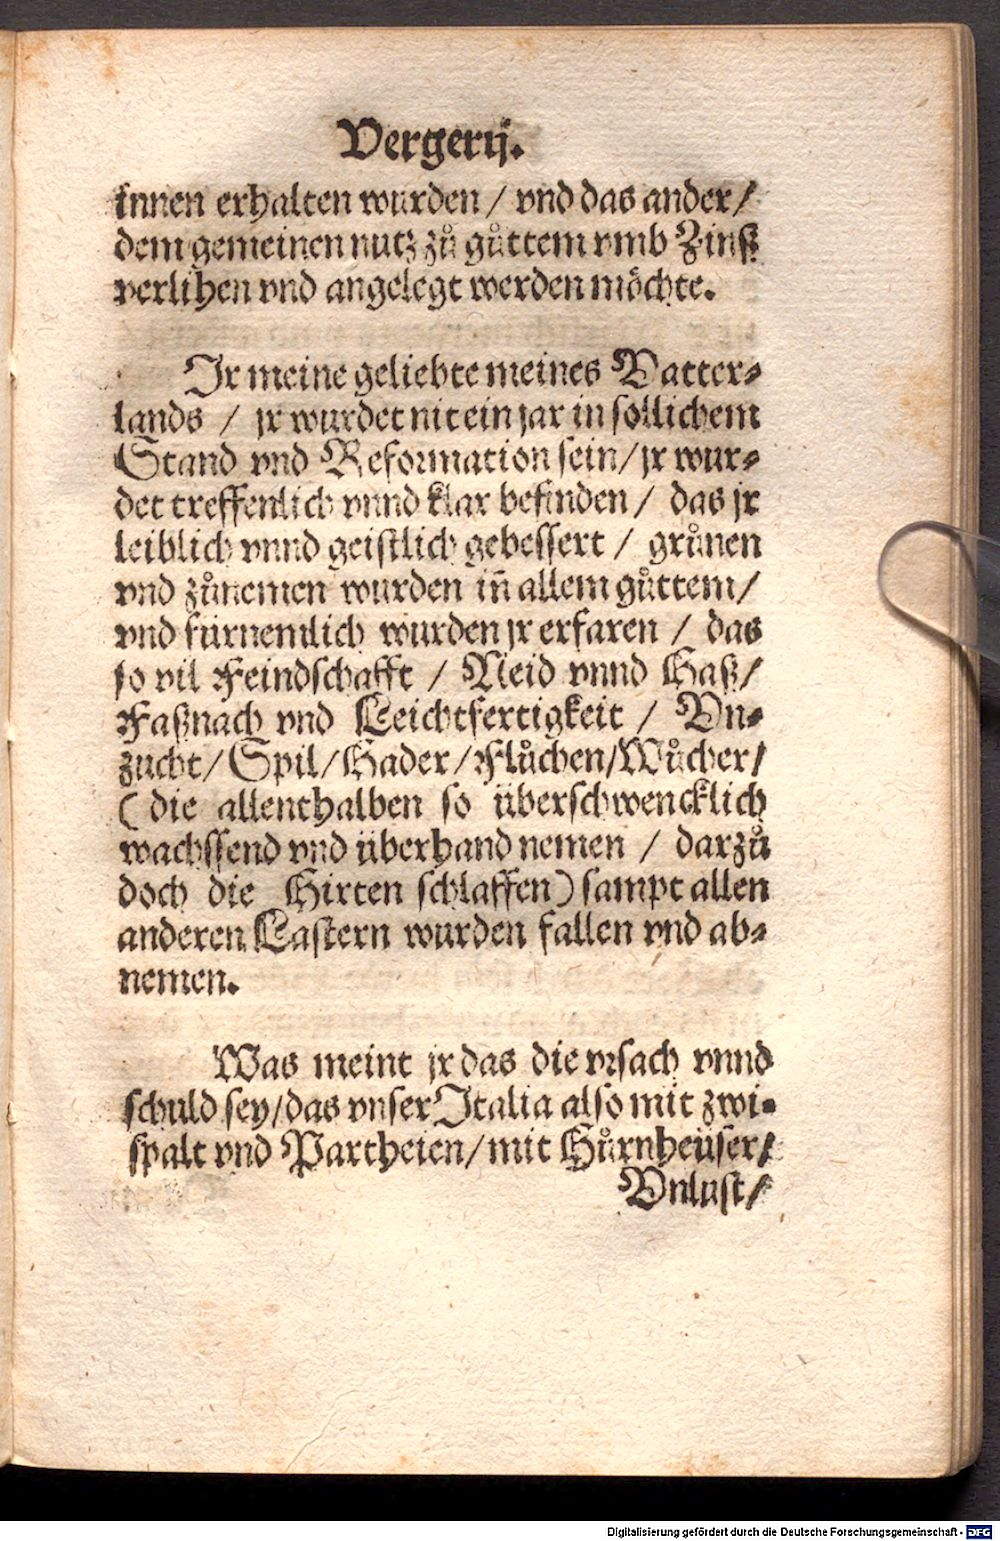 Vergerij.
innen erhalten wurden / vnd das ander /
dem gemeinen nutz zů gůttem vmb Zinß
verlihen vnd angelegt werden möchte.
Ir meine geliebte meines Vatter⸗
lands / jr wurdet nit ein jar in sollichem
Stand vnd Reformation sein / jr wur⸗
det treffenlich vnnd klar befinden / das jr
leiblich vnnd geistlich gebessert / grůnen
vnd zůnemen wurden in̄ allem gůttem /
vnd fürnemlich wurden jr erfaren / das
so vil Feindschafft / Neid vnnd Haß /
Faßnach vnd Leichtfertigkeit / Vn⸗
zucht / Spil / Hader / Flůchen / Wůcher /
(die allenthalben so überschwencklich
wachssend vnd überhand nemen / darzů
doch die Hirten schlaffen) sampt allen
anderen Lastern wurden fallen vnd ab⸗
nemen.
Was meint jr das die vrsach vnnd
schuld sey / das vnser Italia also mit zwi⸗
spalt vnd Partheien / mit Hůrnheüser /
Vnlust /
Digitalisierung gefördert durch die Deutsche Forschungsgemeinschaft - DFG